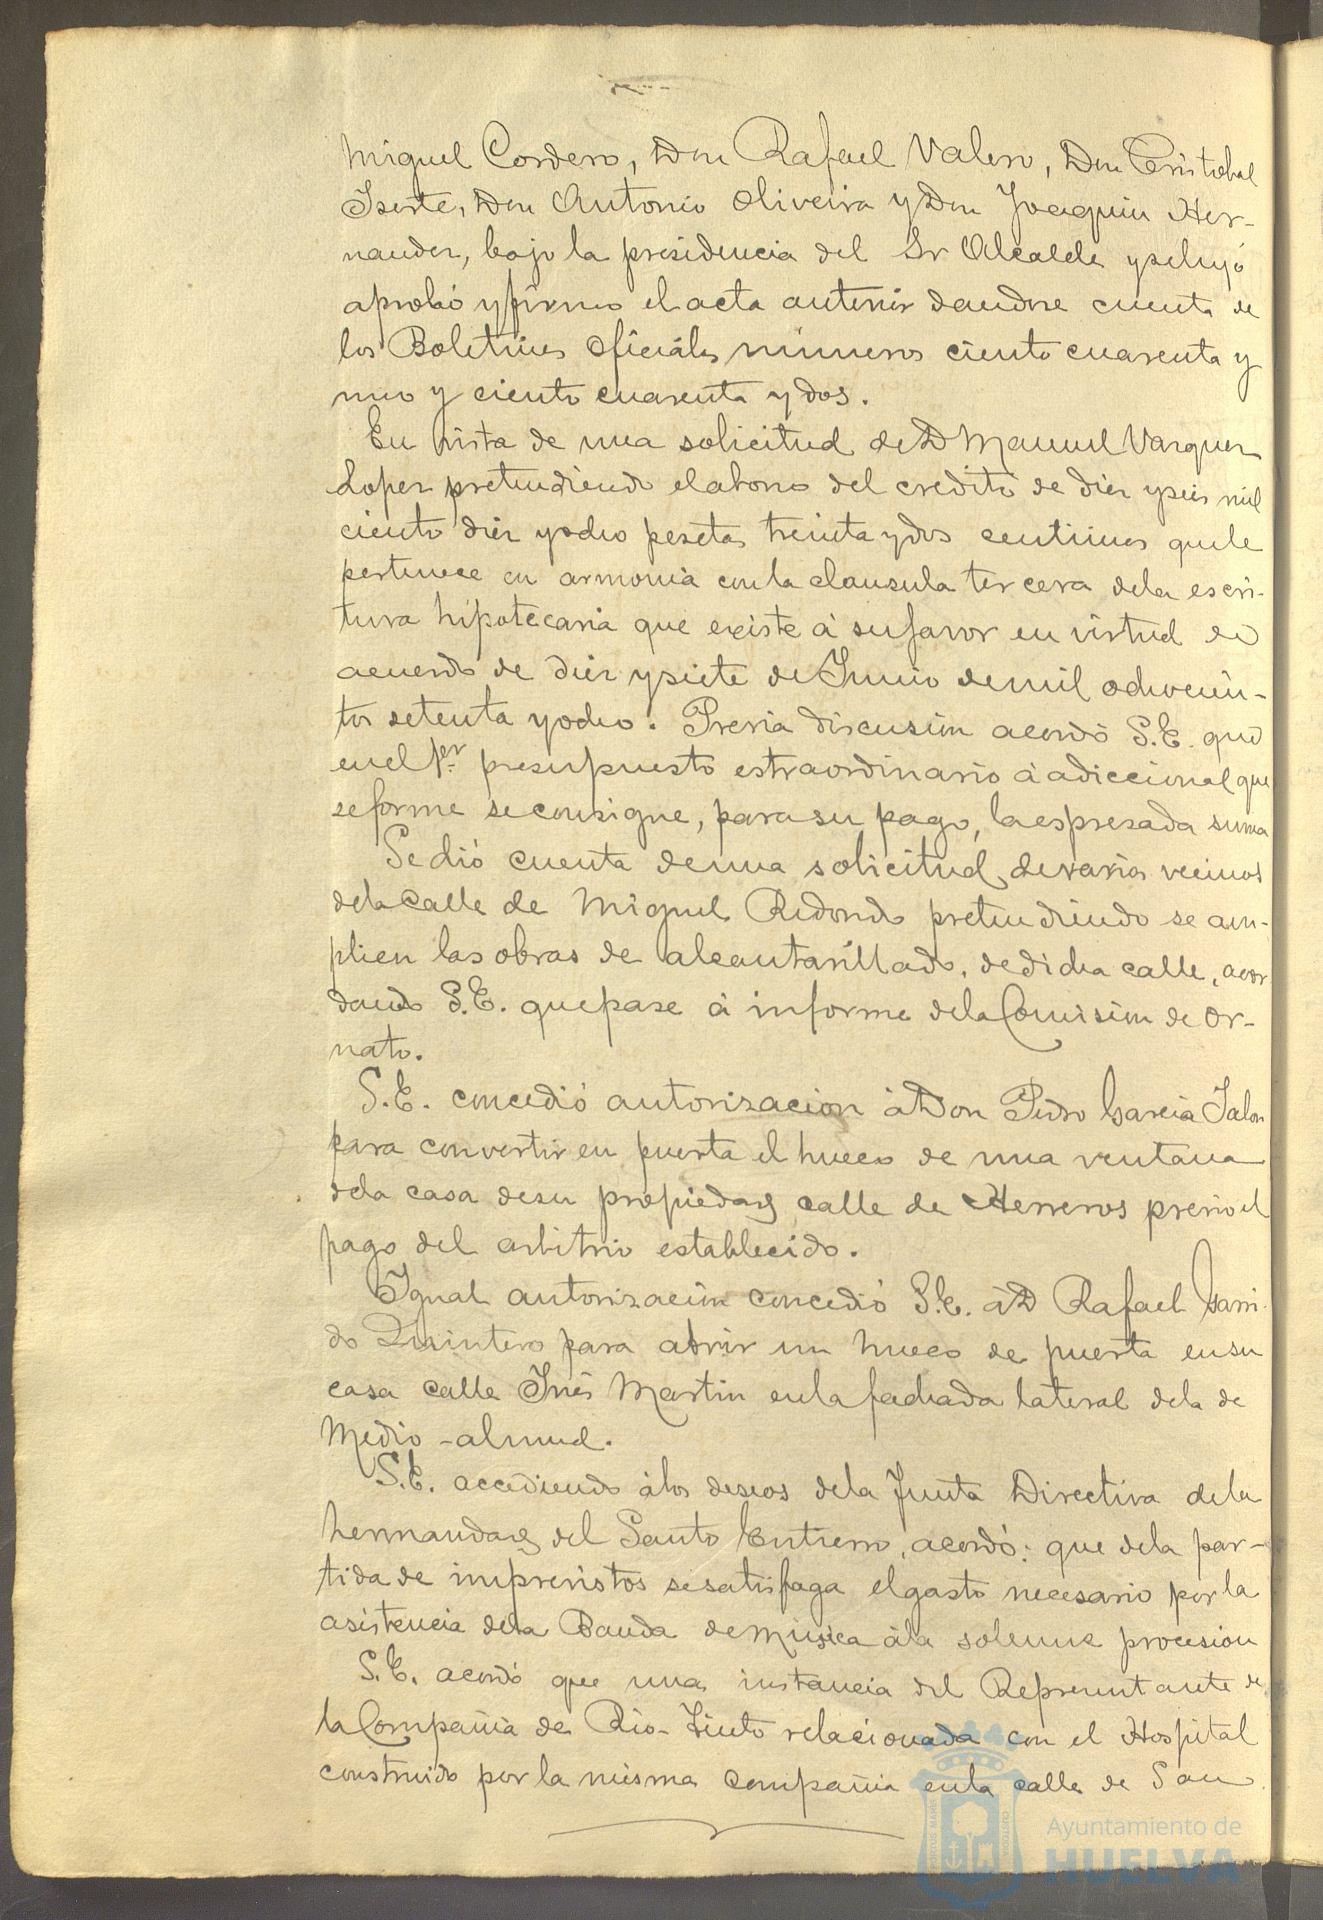 Miguel Cordero, Don Rafael Valero, Don Cristobal
Iserte, Don Antonio Oliveira y Don Joaquin Her-
nandez, bajo la presidencia del Sr Alcalde y se leyó
aprobó y firmó el acta anterior dandose cuenta de
los Boletines oficiales números ciento cuarenta y
uno y ciento cuarenta y dos.
En vista de una solicitud de D Manuel Vazquez
Lopez pretendiendo el abono del credito de diez y seis mil
ciento diez y ocho pesetas treinta y dos centimos que le
pertenece en armonia con la clausula tercera de la escri-
tura hipotecaria que existe á su favor en virtud de
acuerdo de diez y siete de Junio de mil ochocien-
tos setenta y ocho. Previa discusion acordó S.E. que
en el pr presupuesto estraordinario á adiccional que
se forme se consigne, para su pago, la espresada suma
Se dió cuenta de una solicitud de varios vecinos
de la Calle de Miguel Redondo pretendiendo se am-
plien las obras de alcantarillado, de dicha calle, acor
dando S.E. que pase á informe de la Comision de Or-
nato.
S.E. concedió autorizacion á Don Pedro Garcia Jalon
para convertir en puerta el hueco de una ventana
de la casa de su propiedad calle de Herreros previo el
pago del arbitrio establecido.
Igual autorización concedió S.E. á D Rafael Garri-
do Quintero para abrir un hueco de puerta en su
casa calle Inés Martin en la fachada lateral de la de
Medio-almud.
S.E. accediendo á los deseos de la Junta Directiva de la
hermandad del Santo Entierro, acordó: que de la par-
tida de imprevistos se satisfaga el gasto necesario por la
asistencia de la Banda de música á la solemne procesion
S.E. acordó que una instancia del Representante de
la Compañia de Rio-Tinto relacionada con el Hospital
construido por la misma Compañia en la calle de San
Ayuntamiento de
HUELVA